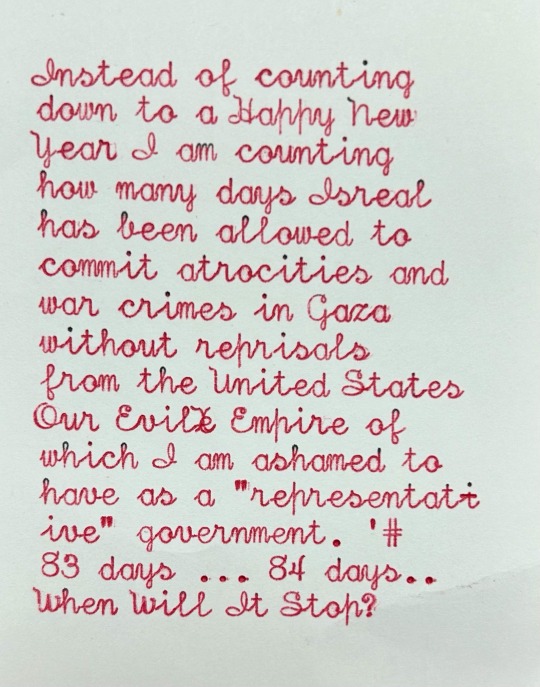 Instead of counting
down to a Happy New
Year I am counting
how many days Isreal
has been allowed to
commit atrocities and
war crimes in Gaza
without reprisals
from the United States
Our Evil Empire of
which I am ashamed to
have as a "representat
ive" government. '#
83 days ... 84 days..
When Will It Stop?